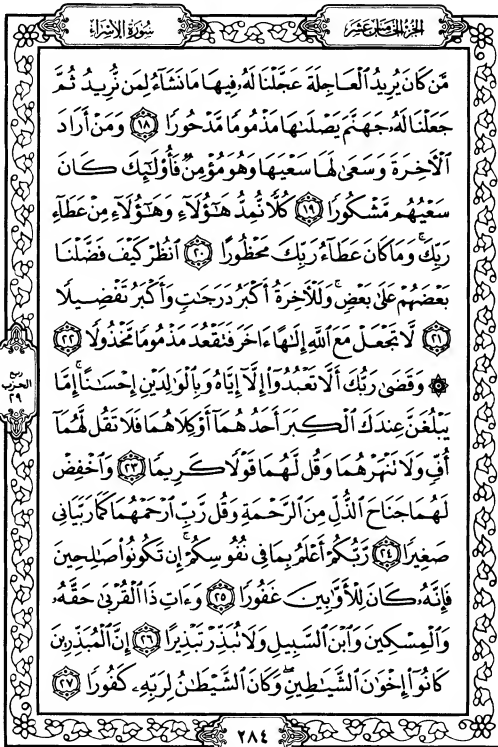 سُورَةُ الإِسْرَاءِ
الجُزْءُ الخَامِسُ عَشَرَ
مَّن كَانَ يُرِيدُ ٱلْعَاجِلَةَ عَجَّلْنَا لَهُۥ فِيهَا مَا نَشَآءُ لِمَن نُّرِيدُ ثُمَّ
جَعَلْنَا لَهُۥ جَهَنَّمَ يَصْلَىٰهَا مَذْمُومًا مَّدْحُورًا ١٨ وَمَنْ أَرَادَ
ٱلْـَٔاخِرَةَ وَسَعَىٰ لَهَا سَعْيَهَا وَهُوَ مُؤْمِنٌ فَأُو۟لَـٰٓئِكَ كَانَ
سَعْيُهُم مَّشْكُورًا ١٩ كُلًّا نُّمِدُّ هَـٰٓؤُلَآءِ وَهَـٰٓؤُلَآءِ مِنْ عَطَآءِ
رَبِّكَ ۚ وَمَا كَانَ عَطَآءُ رَبِّكَ مَحْظُورًا ٢٠ ٱنظُرْ كَيْفَ فَضَّلْنَا
بَعْضَهُمْ عَلَىٰ بَعْضٍ ۚ وَلَلْـَٔاخِرَةُ أَكْبَرُ دَرَجَـٰتٍ وَأَكْبَرُ تَفْضِيلًا
٢١ لَّا تَجْعَلْ مَعَ ٱللَّهِ إِلَـٰهًا ءَاخَرَ فَتَقْعُدَ مَذْمُومًا مَّخْذُولًا ٢٢
۞ وَقَضَىٰ رَبُّكَ أَلَّا تَعْبُدُوٓا۟ إِلَّآ إِيَّاهُ وَبِٱلْوَٰلِدَيْنِ إِحْسَـٰنًا ۚ إِمَّا
يَبْلُغَنَّ عِندَكَ ٱلْكِبَرَ أَحَدُهُمَآ أَوْ كِلَاهُمَا فَلَا تَقُل لَّهُمَآ
أُفٍّ وَلَا تَنْهَرْهُمَا وَقُل لَّهُمَا قَوْلًا كَرِيمًا ٢٣ وَٱخْفِضْ
لَهُمَا جَنَاحَ ٱلذُّلِّ مِنَ ٱلرَّحْمَةِ وَقُل رَّبِّ ٱرْحَمْهُمَا كَمَا رَبَّيَانِى
صَغِيرًا ٢٤ رَّبُّكُمْ أَعْلَمُ بِمَا فِى نُفُوسِكُمْ ۚ إِن تَكُونُوا۟ صَـٰلِحِينَ
فَإِنَّهُۥ كَانَ لِلْأَوَّٰبِينَ غَفُورًا ٢٥ وَءَاتِ ذَا ٱلْقُرْبَىٰ حَقَّهُۥ
وَٱلْمِسْكِينَ وَٱبْنَ ٱلسَّبِيلِ وَلَا تُبَذِّرْ تَبْذِيرًا ٢٦ إِنَّ ٱلْمُبَذِّرِينَ
كَانُوٓا۟ إِخْوَٰنَ ٱلشَّيَـٰطِينِ ۖ وَكَانَ ٱلشَّيْطَـٰنُ لِرَبِّهِۦ كَفُورًا ٢٧
ربع
الحزب
٢٩
٢٨٤